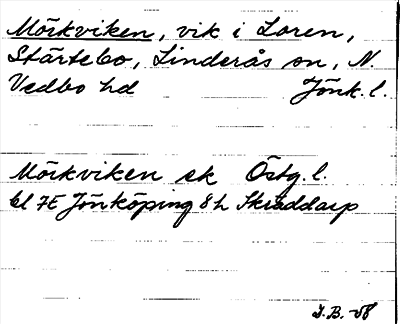 Mörkviken, vik i Loren,
Stärtebo, Linderås sn, N.
Vedbo hd Jönk. l.
Mörkviken ek Östg. l.
bl 7E Jönköping 8h Skräddarp
I.B. -58